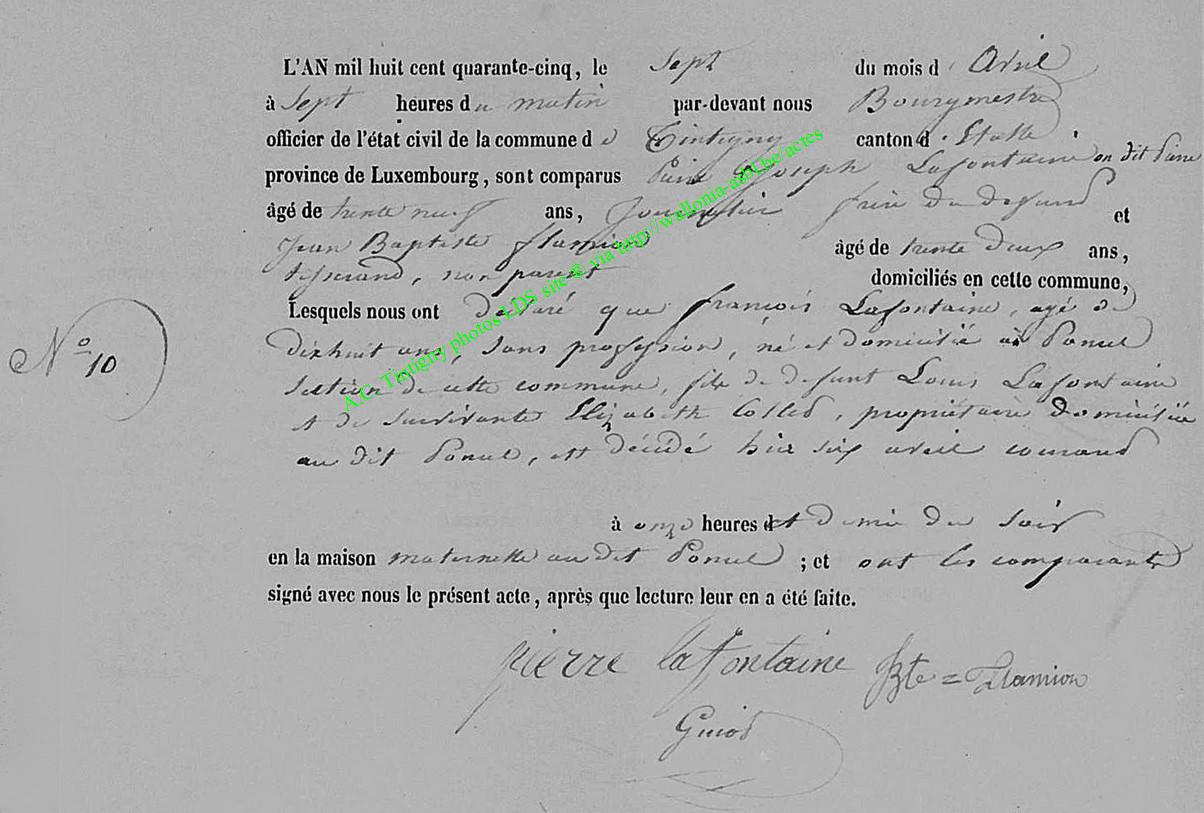 L'AN mil huit cent quarante-cinq, le sept du mois d'Avril
à Sept heures du matin par-devant nous Bourgmestre
officier de l'état civil de la commune de Tintigny canton d'Etalle
province de Luxembourg, sont comparus Pierre Joseph Lafontaine on dit Pierre
âgé de trente neuf ans, Journalier frère du defunt et
Jean Baptiste Flamion âgé de trente deux ans,
tisserand, non parent domiciliés en cette commune,
Lesquels nous ont déclaré que françois Lafontaine, agé de
dixhuit ans, sans profession, né et domicilié à Poncel
section de cette commune, fils de defunt Louis Lafontaine
N° 10
et de survivante Elizabeth Colled, propriétaire domiciliée
au dit Poncel, est décédé hier six avril courand
à onze heures et demie du soir
en la maison maternelle au dit Poncel ; et ont les comparants
signé avec nous le présent acte, après que lecture leur en a été faite.
pierre lafontaine Bte = Flamion
Guiod
A.C. Tintigny photos LDS site © via http://wallonia-asbl.be/actes